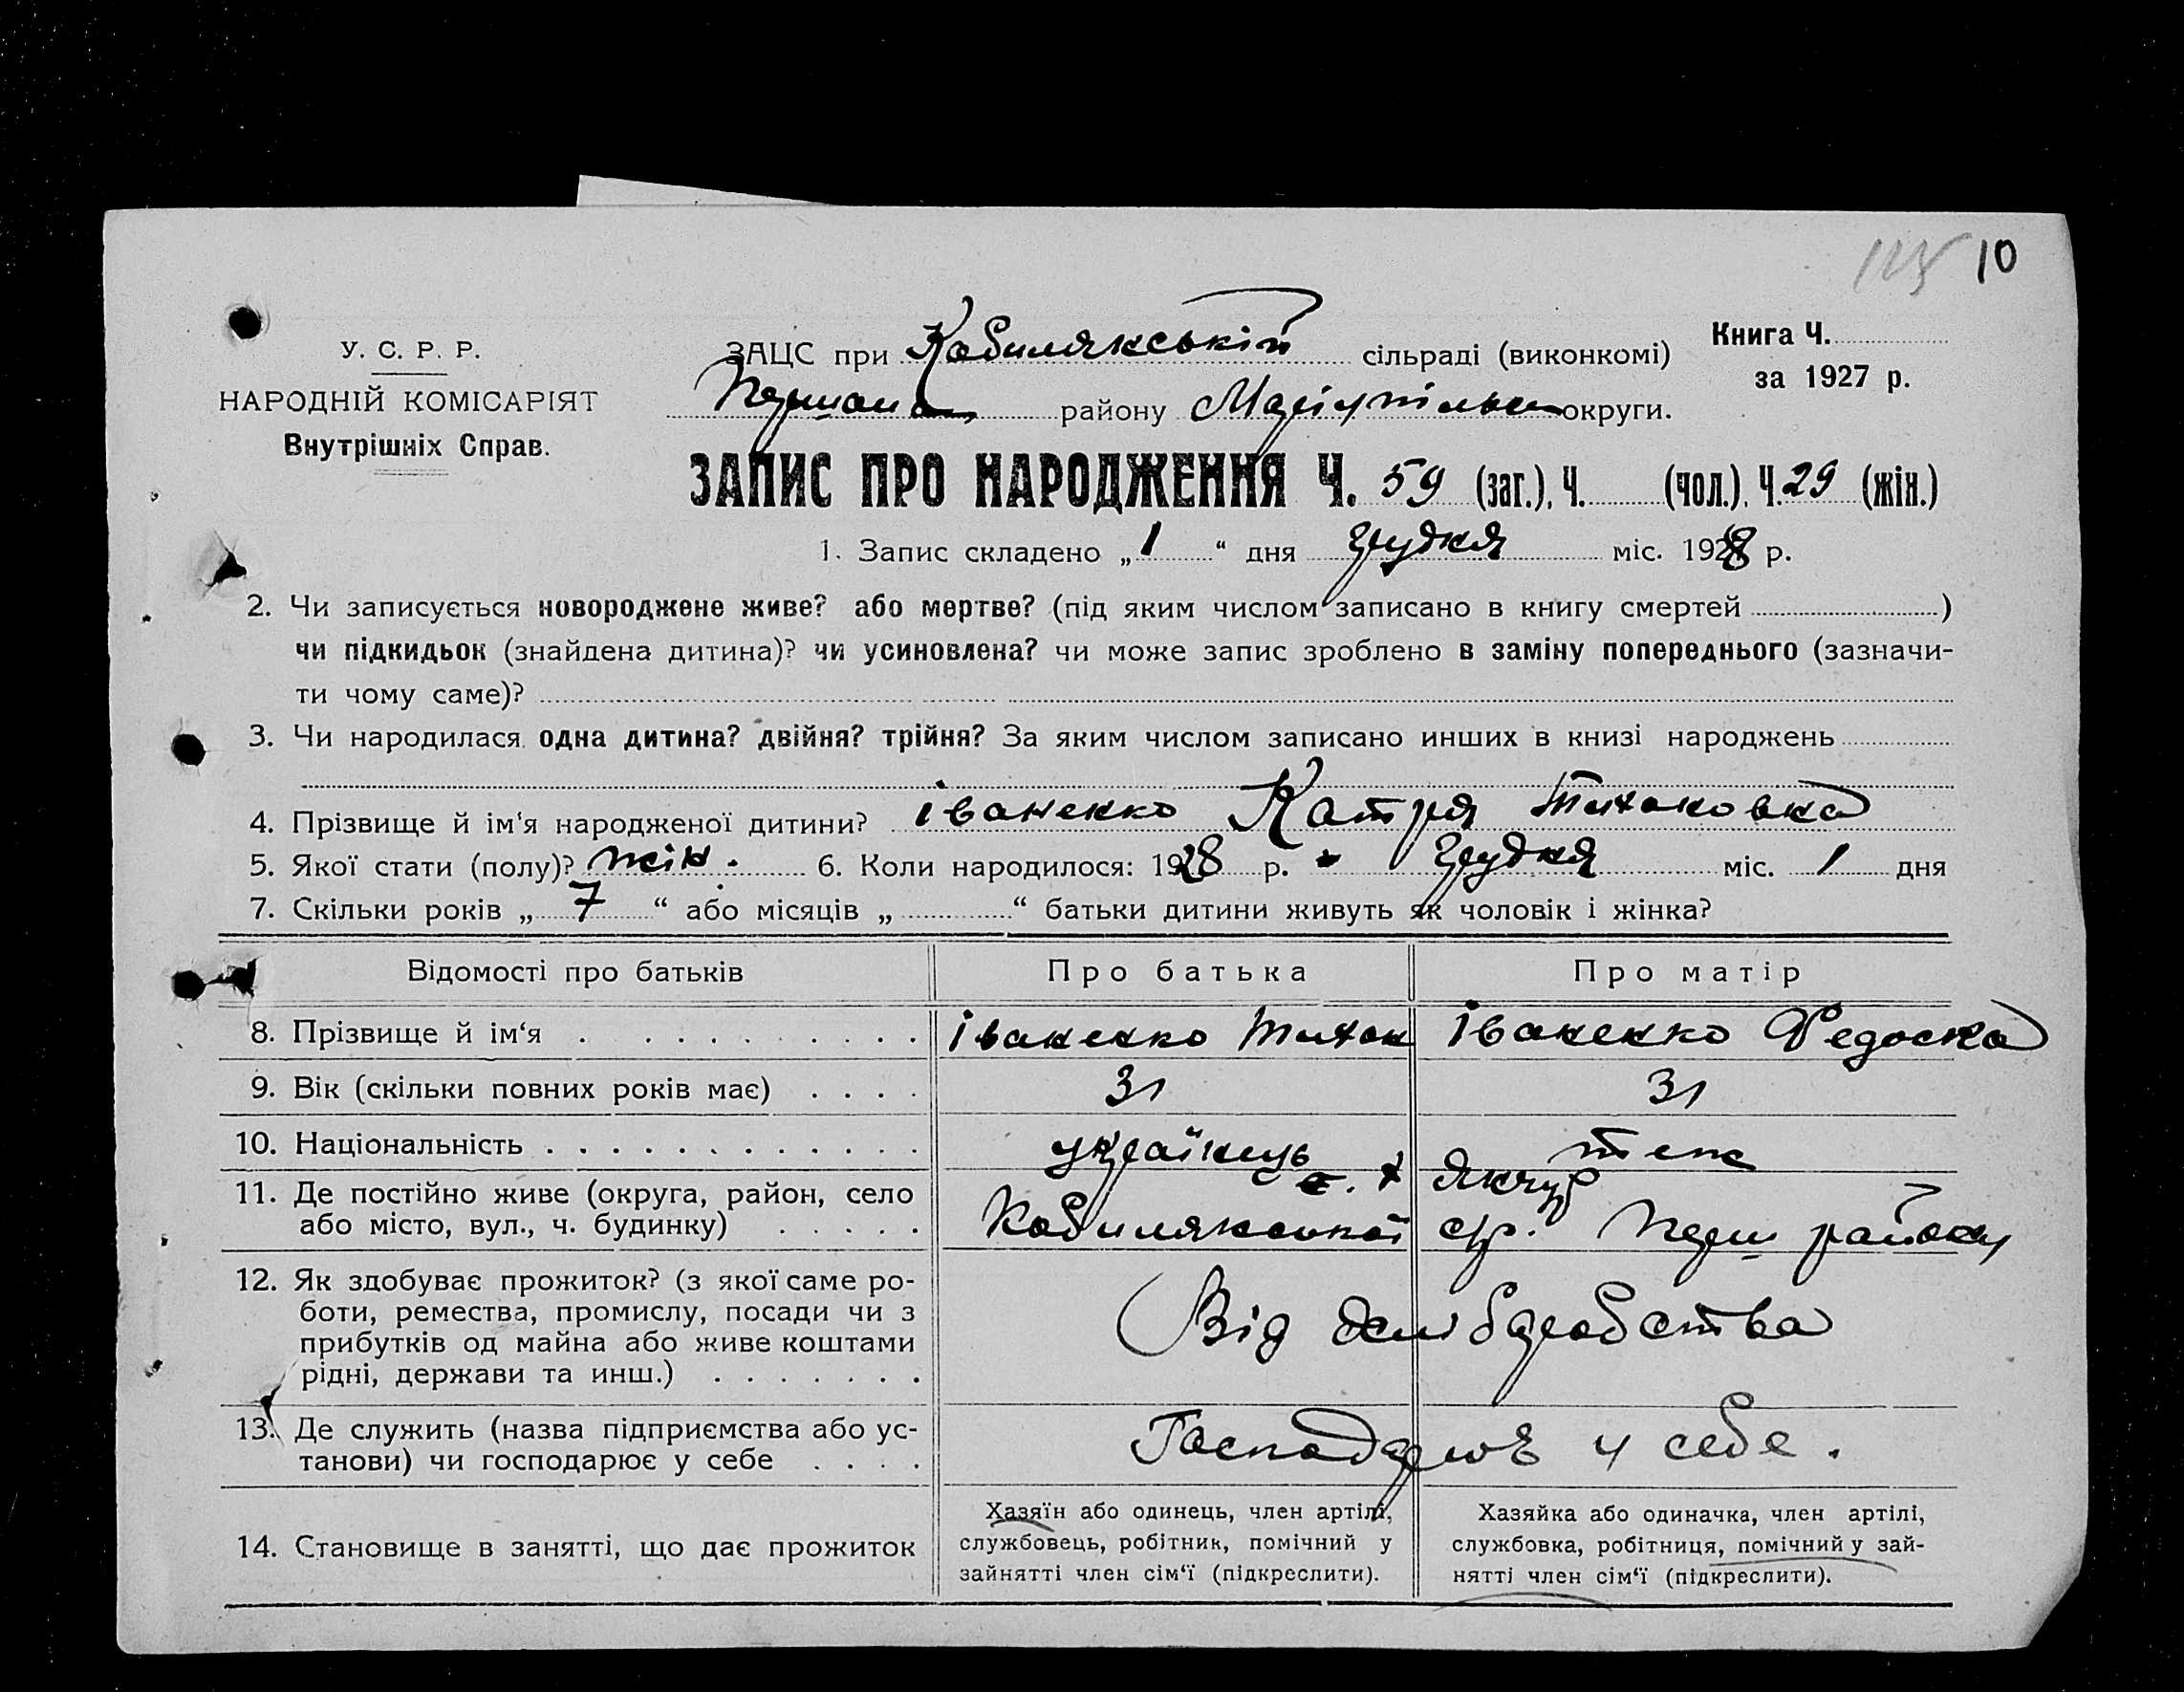 10
У. С. Р. Р.
НАРОДНІЙ КОМІСАРІЯТ
Внутрішніх Справ.
ЗАЦС при Кобилякській сільраді (виконкомі)
Першот району Маріупільськ округи.
Книга Ч.
за 1927 р.
ЗАПИС ПРО НАРОДЖЕННЯ Ч. 59 (заг.), Ч. (чол.), Ч. 29 (жін.)
1. Запис складено „ 1 “ дня грудня міс. 1928 р.
2. Чи записується новороджене живе? або мертве? (під яким числом записано в книгу смертей )
чи підкидьок (знайдена дитина)? чи усиновлена? чи може запис зроблено в заміну попереднього (зазначи-
ти чому саме)?
3. Чи народилася одна дитина? двійня? трійня? За яким числом записано инших в книзі народжень
4. Прізвище й ім‘я народженої дитини? Іваненко Катря Тихоновна
5. Якої стати (полу)? жін. 6. Коли народилося: 1928 р. грудня міс. 1 дня
7. Скільки років „ 7 “ або місяців „ “ батьки дитини живуть як чоловік і жінка?
Відомості про батьків Про батька Про матір
8. Прізвище й ім‘я Іваненко Тихон Іваненко Федоска
9. Вік (скільки повних років має) 31 31
10. Національність українць теж
11. Де постійно живе (округа, район, село
або місто, вул., ч. будинку) Кобилякської с/р. Перш району
12. Як здобуває прожиток? (з якої саме ро-
боти, ремества, промислу, посади чи з
прибутків од майна або живе коштами
рідні, держави та инш.) Від хліборобства
13. Де служить (назва підприємства або ус-
танови) чи господарює у себе Господарює у себе.
14. Становище в занятті, що дає прожиток
Хазяїн або одинець, член артілі,
службовець, робітник, помічний у
зайнятті член сім‘ї (підкреслити).
Хазяйка або одиначка, член артілі,
службовка, робітниця, помічний у зай-
нятті член сім‘ї (підкреслити).